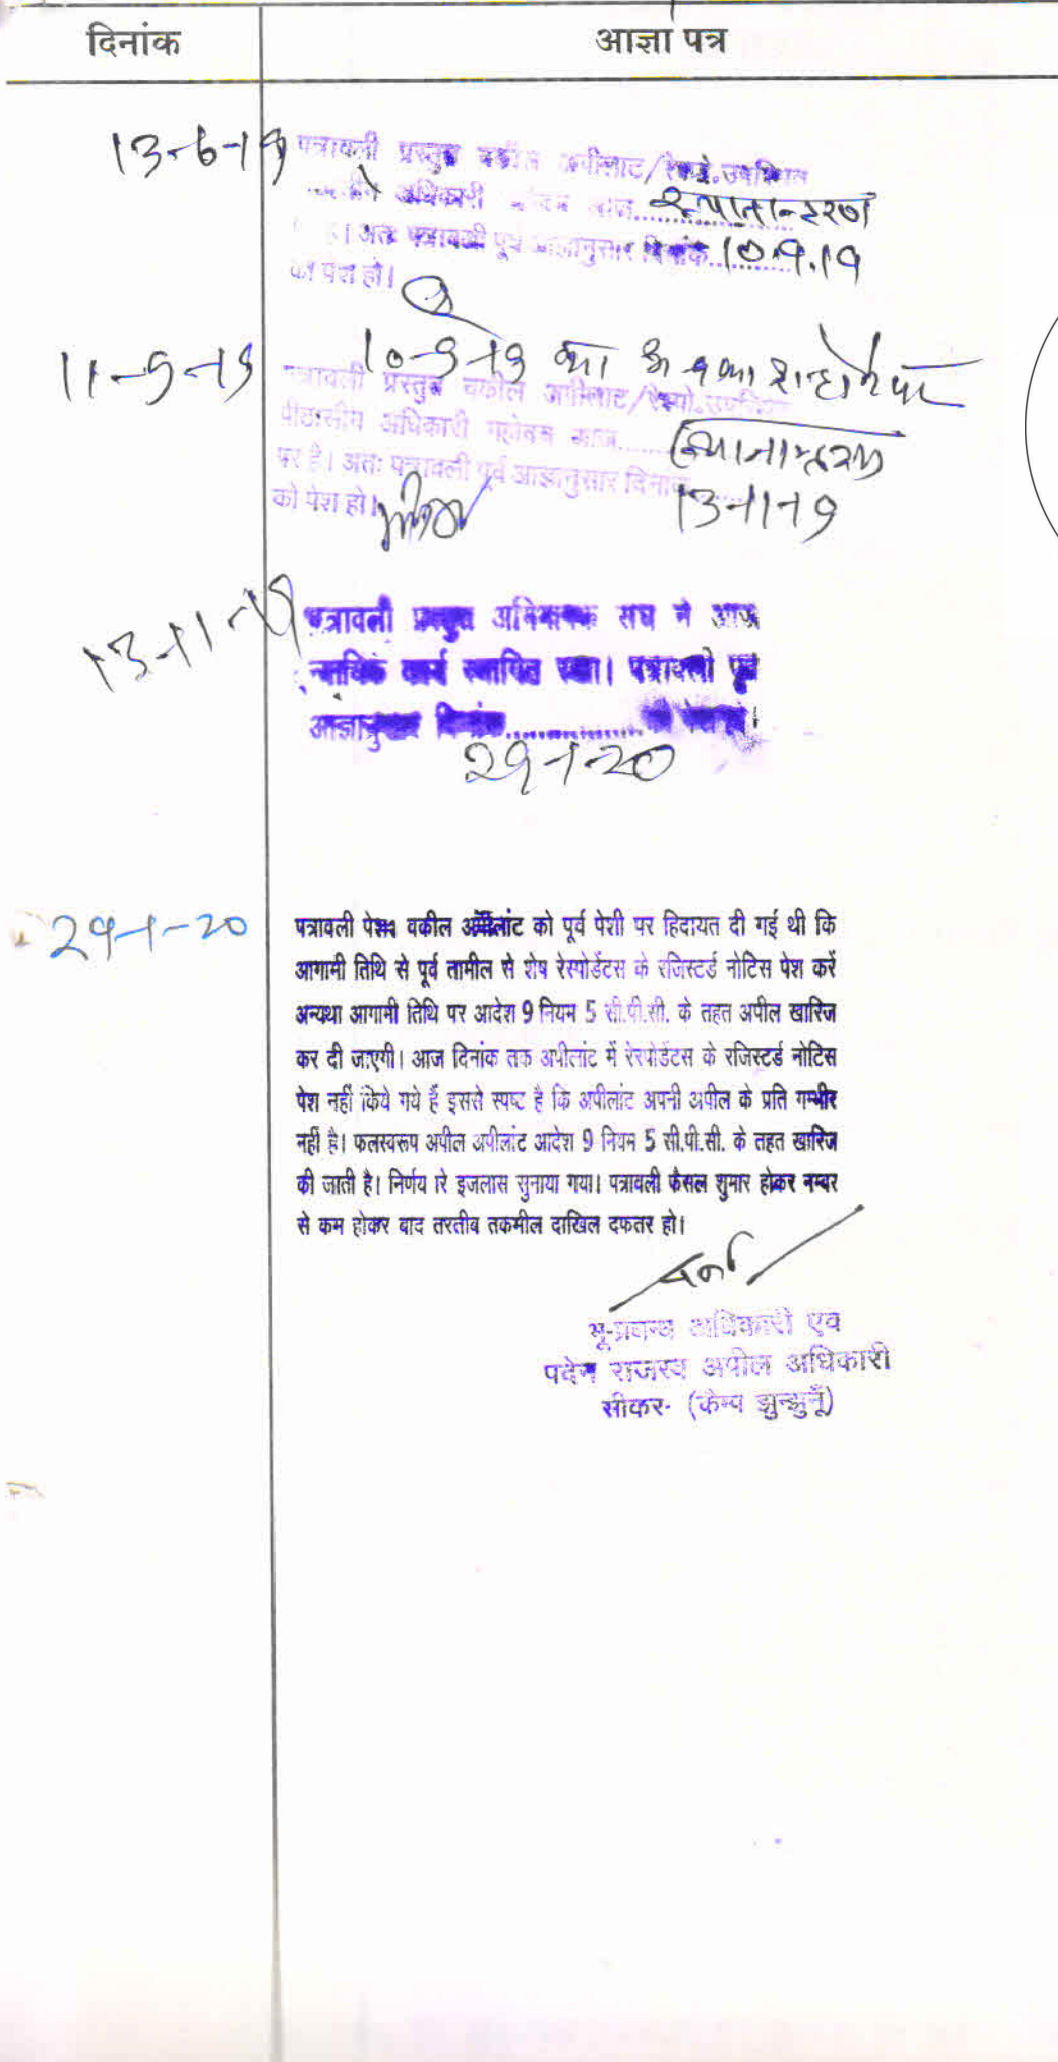 दिनांक
आज्ञा पत्र
13-6-19
पत्रावली प्रस्तुत वकील अपीलाट/रेस्पो.उपस्थित
अधिकारी आज
है। अतः पत्रावली पूर्व आज्ञानुसार दिनांक 10.9.19
को पेश हो।
11-9-19
10-9-19 का अवकाश होने पर
पत्रावली प्रस्तुत वकील अपीलाट/रेस्पो.उपस्थित
पीठासीन अधिकारी महोदय आज स्थानान्तरण
पर है। अतः पत्रावली पूर्व आज्ञानुसार दिनांक
को पेश हो। 13-11-19
13-11-19
पत्रावली प्रस्तुत अभिभाषक संघ ने आज
न्यायिक कार्य स्थगित रखा। पत्रावली पूर्व
आज्ञानुसार दिनांक.................. को पेश हो।
29-1-20
29-1-20
पत्रावली पेश। वकील अपीलांट को पूर्व पेशी पर हिदायत दी गई थी कि
आगामी तिथि से पूर्व तामील से शेष रेस्पोडेंटस के रजिस्टर्ड नोटिस पेश करें
अन्यथा आगामी तिथि पर आदेश 9 नियम 5 सी.पी.सी. के तहत अपील खारिज
कर दी जाएगी। आज दिनांक तक अपीलांट में रेस्पोडेंटस के रजिस्टर्ड नोटिस
पेश नहीं किये गये हैं इससे स्पष्ट है कि अपीलांट अपनी अपील के प्रति गम्भीर
नहीं है। फलस्वरूप अपील अपीलांट आदेश 9 नियम 5 सी.पी.सी. के तहत खारिज
की जाती है। निर्णय सरे इजलास सुनाया गया। पत्रावली फैसल शुमार होकर नम्बर
से कम होकर बाद तरतीब तकमील दाखिल दफतर हो।
भू-प्रबन्ध अधिकारी एव
पदेन राजस्व अपील अधिकारी
सीकर- (केम्प झुन्झुनूँ)